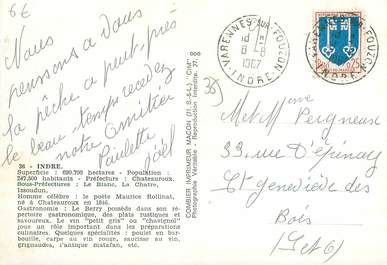 6€
Nous
pensons à vous
la pêche a peut près
le beau temps
notre Amitiée
Paulette
Joël
36 - INDRE.
Superficie : 690.700 hectares - Population :
247.500 habitants - Préfecture : Chateauroux.
Sous-Préfectures : Le Blanc, La Chatre,
Issoudun.
Homme célèbre : le poète Maurice Rollinat,
né à Chateauroux en 1846.
Gastronomie : Le Berry possède dans son ré-
pertoire gastronomique, des plats rustiques et
savoureux. Le vin "petit gris" ou "chavignol"
joue un rôle important dans les préparations
culinaires. Quelques spécialités : poulet en bar-
bouille, carpe au vin rouge, saucisse au vin,
grignaudes, fromage
COMBIER IMPRIMEUR MACON (71. S.-&-L.) "CIM"
Photographie Véritable - Reproduction interdite. 37. 000
VARENNES SUR FOUZON
8 - 8
1967
INDRE
0,25
36)
M et Mme Peigneux
33 rue d'Épinay
St Geneviève des
Bois